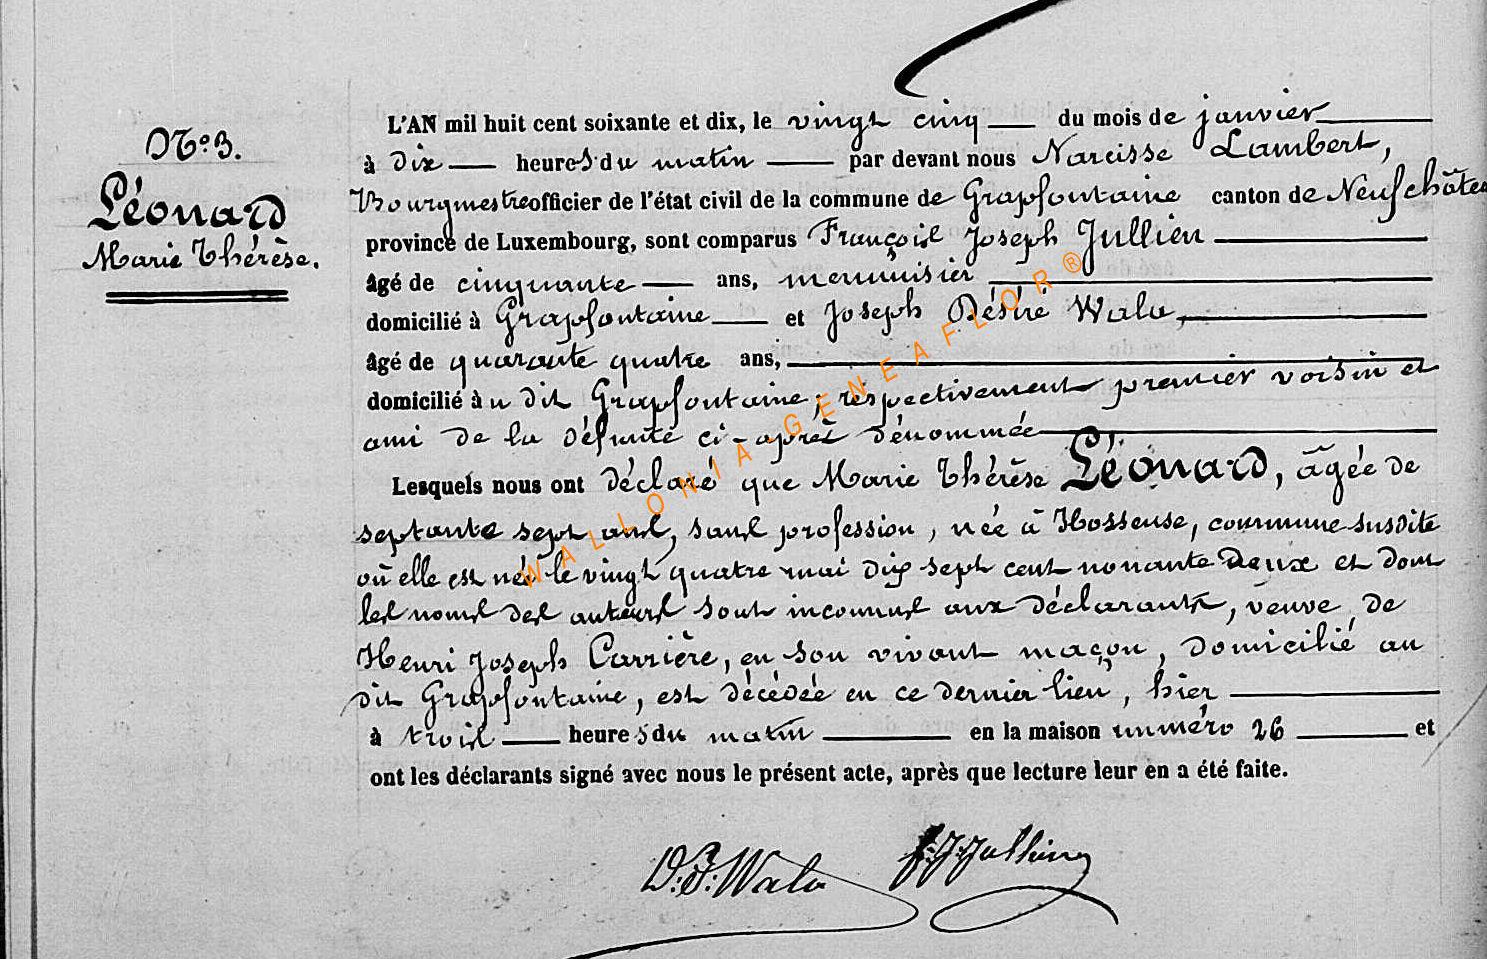 N.º 3.
Léonard
Marie Thérèse.
L'AN mil huit cent soixante et dix, le vingt cinq du mois de janvier
à dix heures du matin par devant nous Narcisse Lambert,
Bourgmestre officier de l'état civil de la commune de Grapfontaine canton de Neufchâteau
province de Luxembourg, sont comparus François Joseph Jullien
âgé de cinquante ans, menuisier
domicilié à Grapfontaine et Joseph Désiré Wala,
âgé de quarante quatre ans,
domicilié à u dit Grapfontaine, respectivement premier voisin et
ami de la défunte ci-après dénommée
Lesquels nous ont déclaré que Marie Thérèse Léonard, âgée de
septante sept ans, sans profession, née à Hosseuse, commune susdite
où elle est née le vingt quatre mai dix sept cent nonante deux et dont
les noms des auteurs sont inconnus aux déclarants, veuve de
Henri Joseph Carrière, en son vivant maçon, domicilié au
dit Grapfontaine, est décédée en ce dernier lieu, hier
à trois heures du matin en la maison numéro 26 et
ont les déclarants signé avec nous le présent acte, après que lecture leur en a été faite.
D. J. Wala F. J. Jullien
WALLONIA-GENEAFLOR®